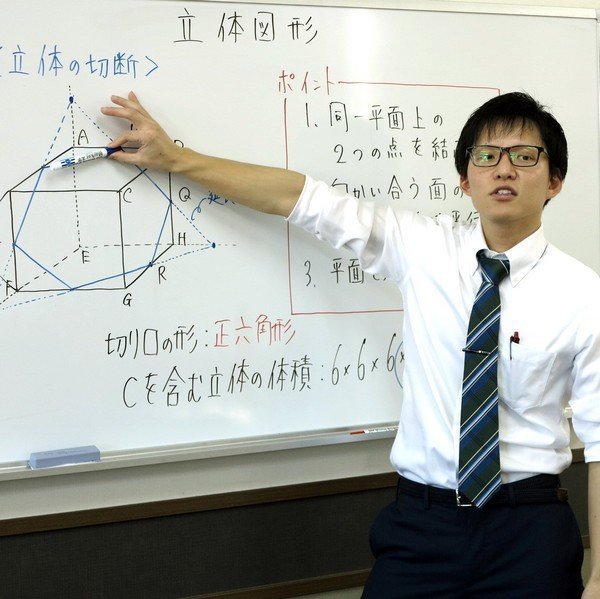 立体図形
立体の切断>
ポイント
1. 同一平面上の
2つの点を結
向かい合う面の
3. 平面で
A
C
Q
E
H
R
F
G
切り口の形:正六角形
Cを含む立体の体積:6×6×6×